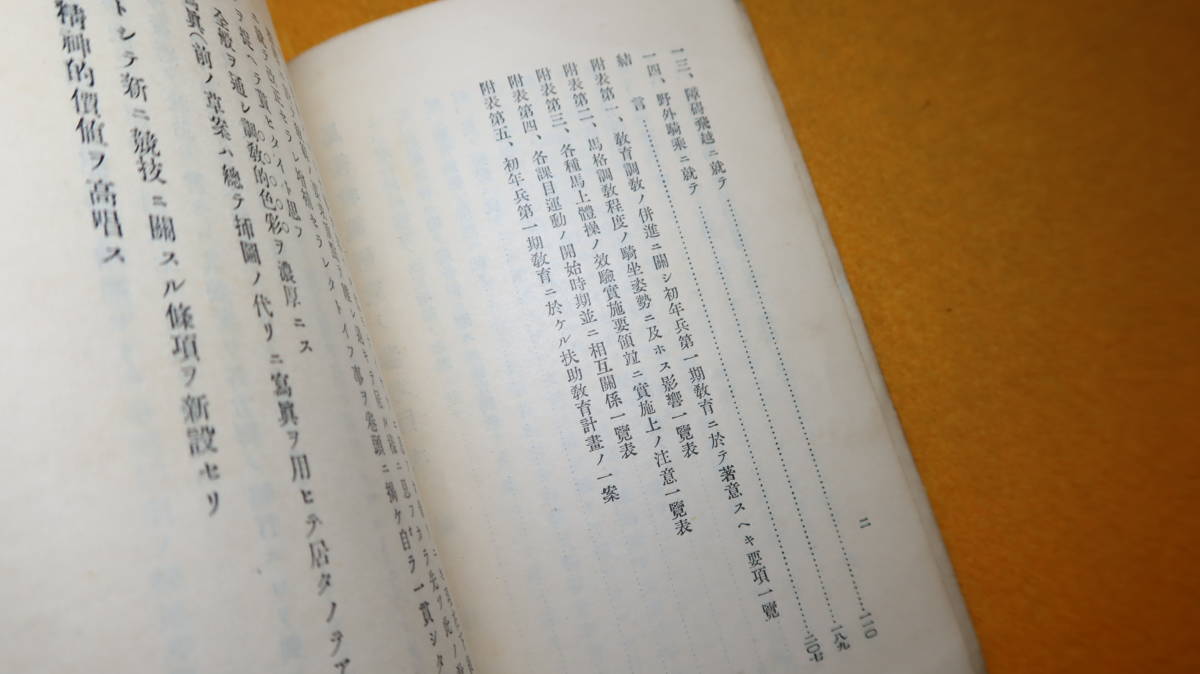 一三、障碍飛越ニ就テ…………一一〇
一四、野外騎乘ニ就テ…………一八九
結　言…………二〇七
附表第一、教育調教ノ併進ニ關シ初年兵第一期教育ニ於テ著意スヘキ要項一覽
附表第二、馬格調教程度ノ騎坐姿勢ニ及ホス影響一覽表
附表第三、各種馬上體操ノ效驗實施要領竝ニ實施上ノ注意一覽表
附表第四、各課目運動ノ開始時期並ニ相互關係一覽表
附表第五、初年兵第一期教育ニ於ケル扶助教育計畫ノ一案
二
事ヲ卷頭ニ揭ケ自ラ一貫シタ
全般ヲ通シ調教的色彩ヲ濃厚ニス
(前ノ草案ハ總テ插圖ノ代リニ寫眞ヲ用ヒテ居タノテア
トシテ新ニ競技ニ關スル條項ヲ新設セリ
精神的價値ヲ高唱ス